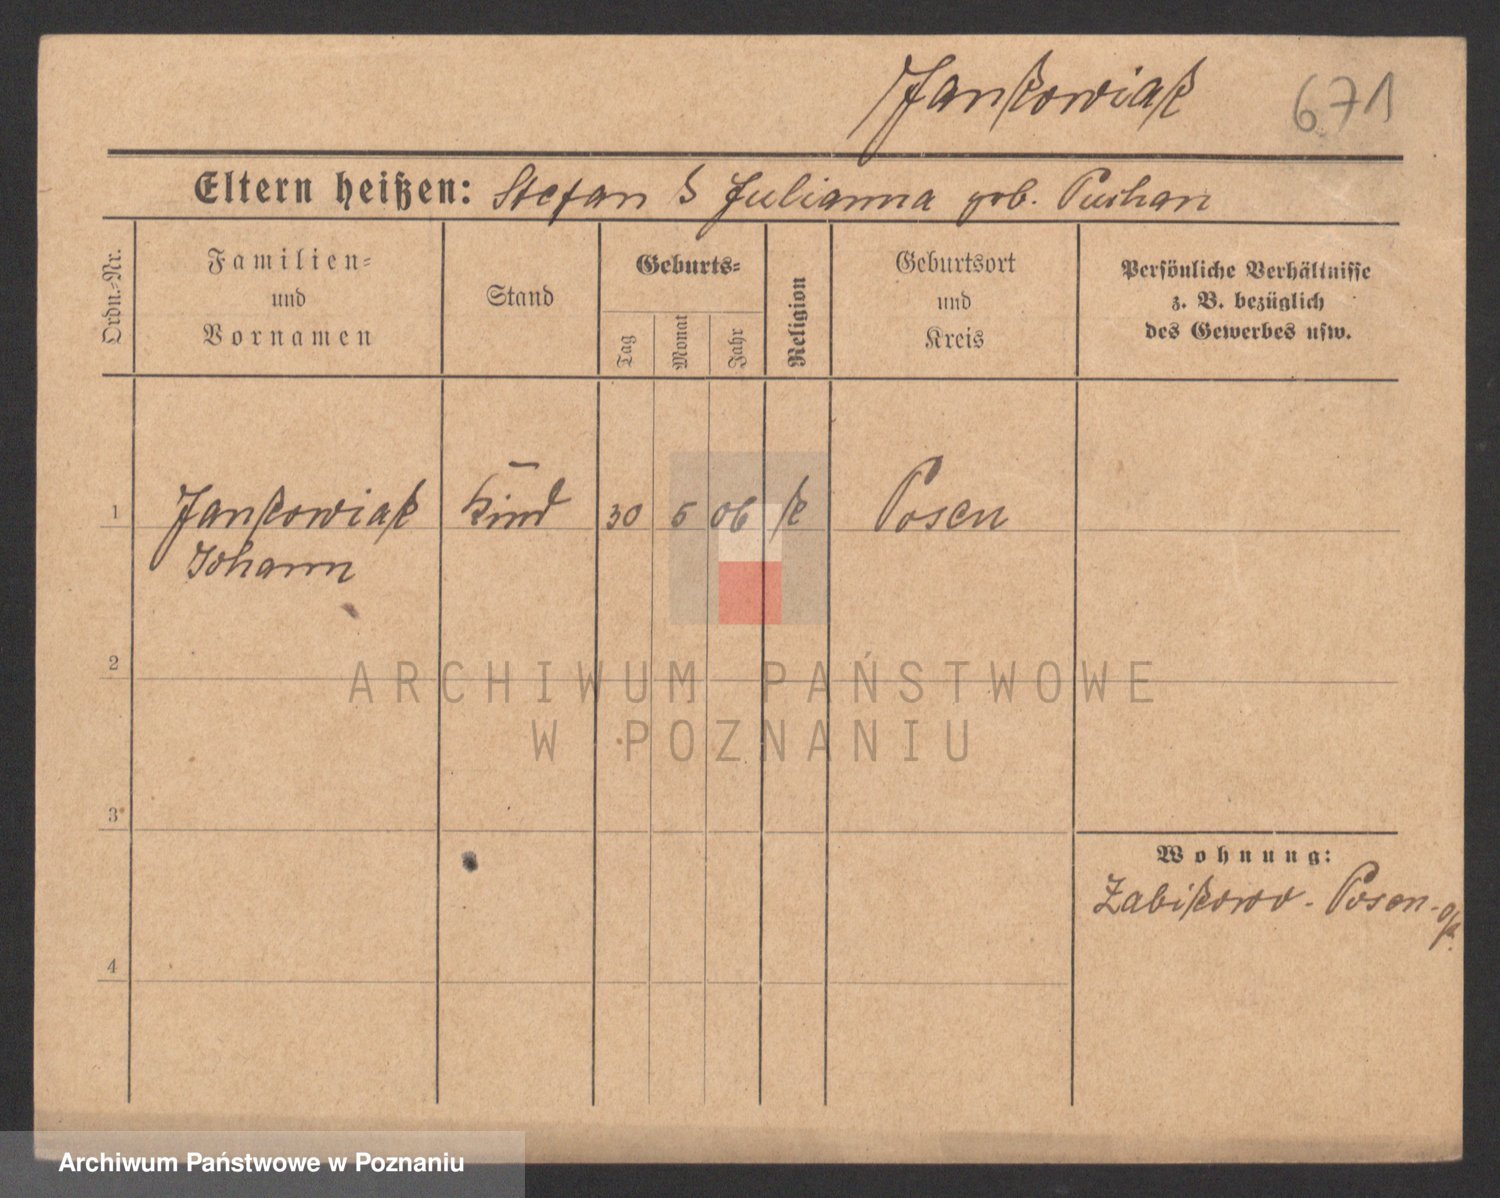 Jankowiak 671
Eltern heißen: Stefan & Julianna geb.
Ordn.-Nr.
Familien-
und
Vornamen
Stand
Geburts-
Tag
Monat
Jahr
Religion
Geburtsort
und
Kreis
Persönliche Verhältnisse
z. B. bezüglich
des Gewerbes usw.
1 Jankowiak Kind 30 5 06 k Posen
Johann
2
3
4
Wohnung:
Zabikowo - Posen -
ARCHIWUM PAŃSTWOWE
W POZNANIU
Archiwum Państwowe w Poznaniu